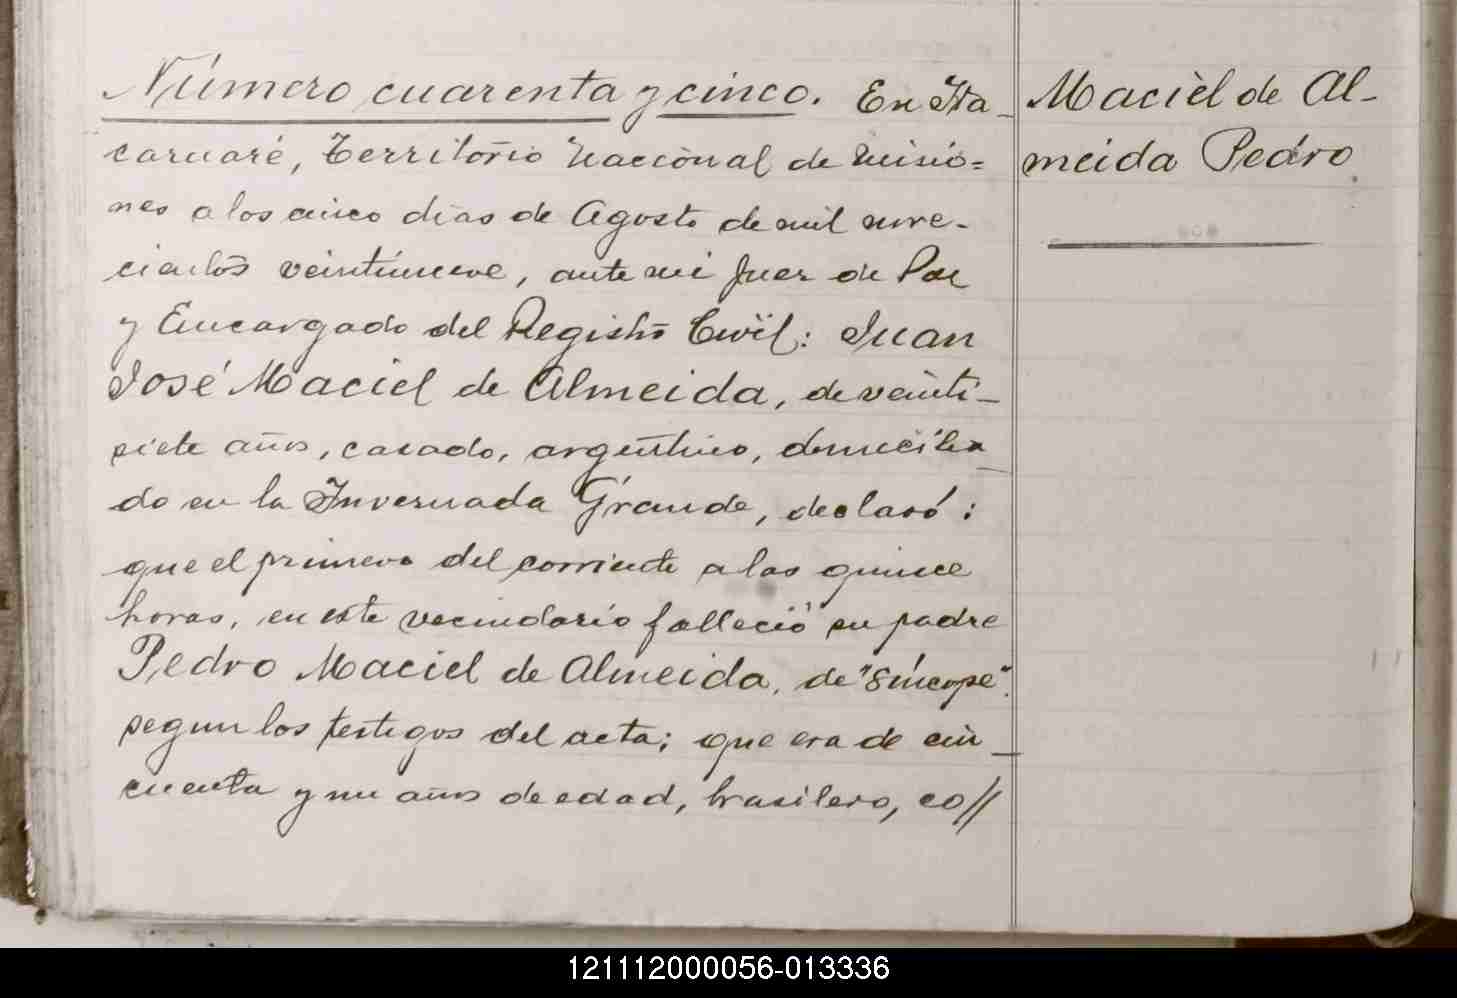 Número cuarenta y cinco. En Ita_
caruaré, Territorio Nacional de Misio=
nes a los cinco días de Agosto de mil nove-
cientos veintinueve, ante mi Juez de Paz
y Encargado del Registro Civil: Juan
José Maciel de Almeida, de veinti_
siete años, casado, argentino, domicilia_
do en la Invernada Grande, declaró:
que el primero del corriente a las quince
horas, en este vecindario falleció su padre
Pedro Maciel de Almeida, de "Síncope".
segun los testigos del acta; que era de cin_
cuenta y un años de edad, brasilero, co//
Maciel de Al-
meida Pedro
121112000056-013336